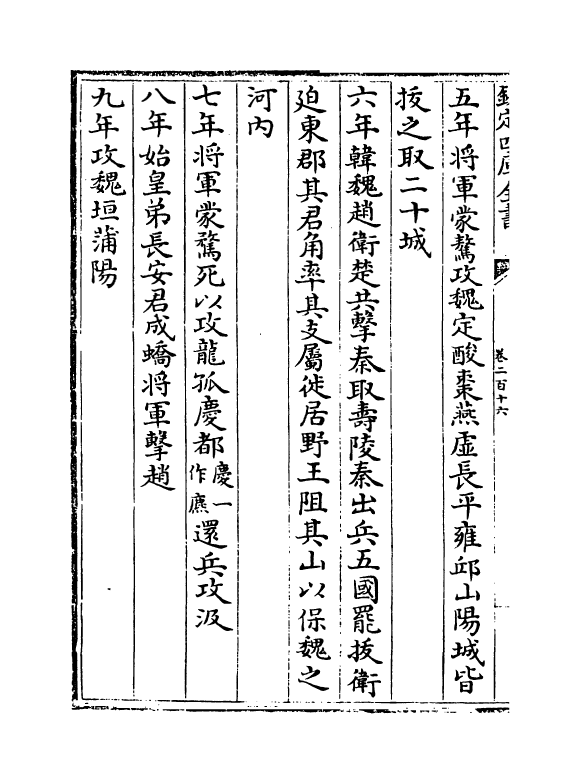 欽定四庫全書
卷二百十六
五年將軍蒙驁攻魏定酸棗燕虛長平雍邱山陽城皆
拔之取二十城
六年韓魏趙衛楚共擊秦取壽陵秦出兵五國罷拔衛
廹東郡其君角率其支屬徙居野王阻其山以保魏之
河內
七年將軍蒙驁死以攻龍孤慶都慶一作麃還兵攻汲
八年始皇弟長安君成蟜將軍擊趙
九年攻魏垣蒲陽